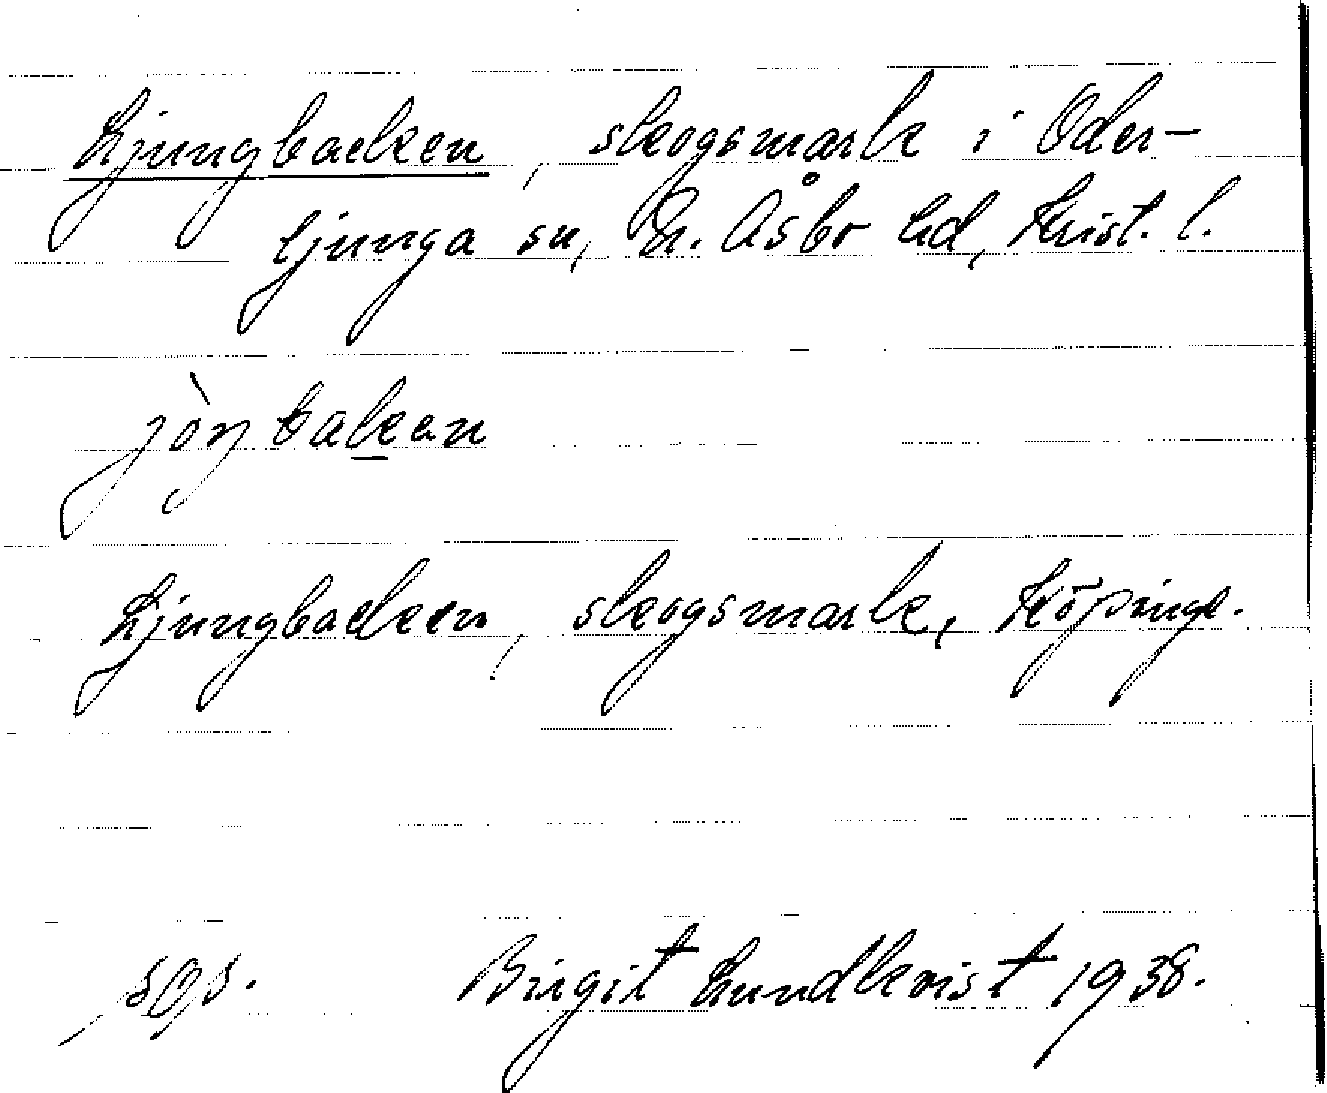 Ljungbacken, skogsmark i Oder-
ljunga sn, N. Åsbo hd, Krist. l.
jòŋbakan
Ljungbacken, skogsmark, Köpinge.
sgs. Birgit Lundkvist 1938.